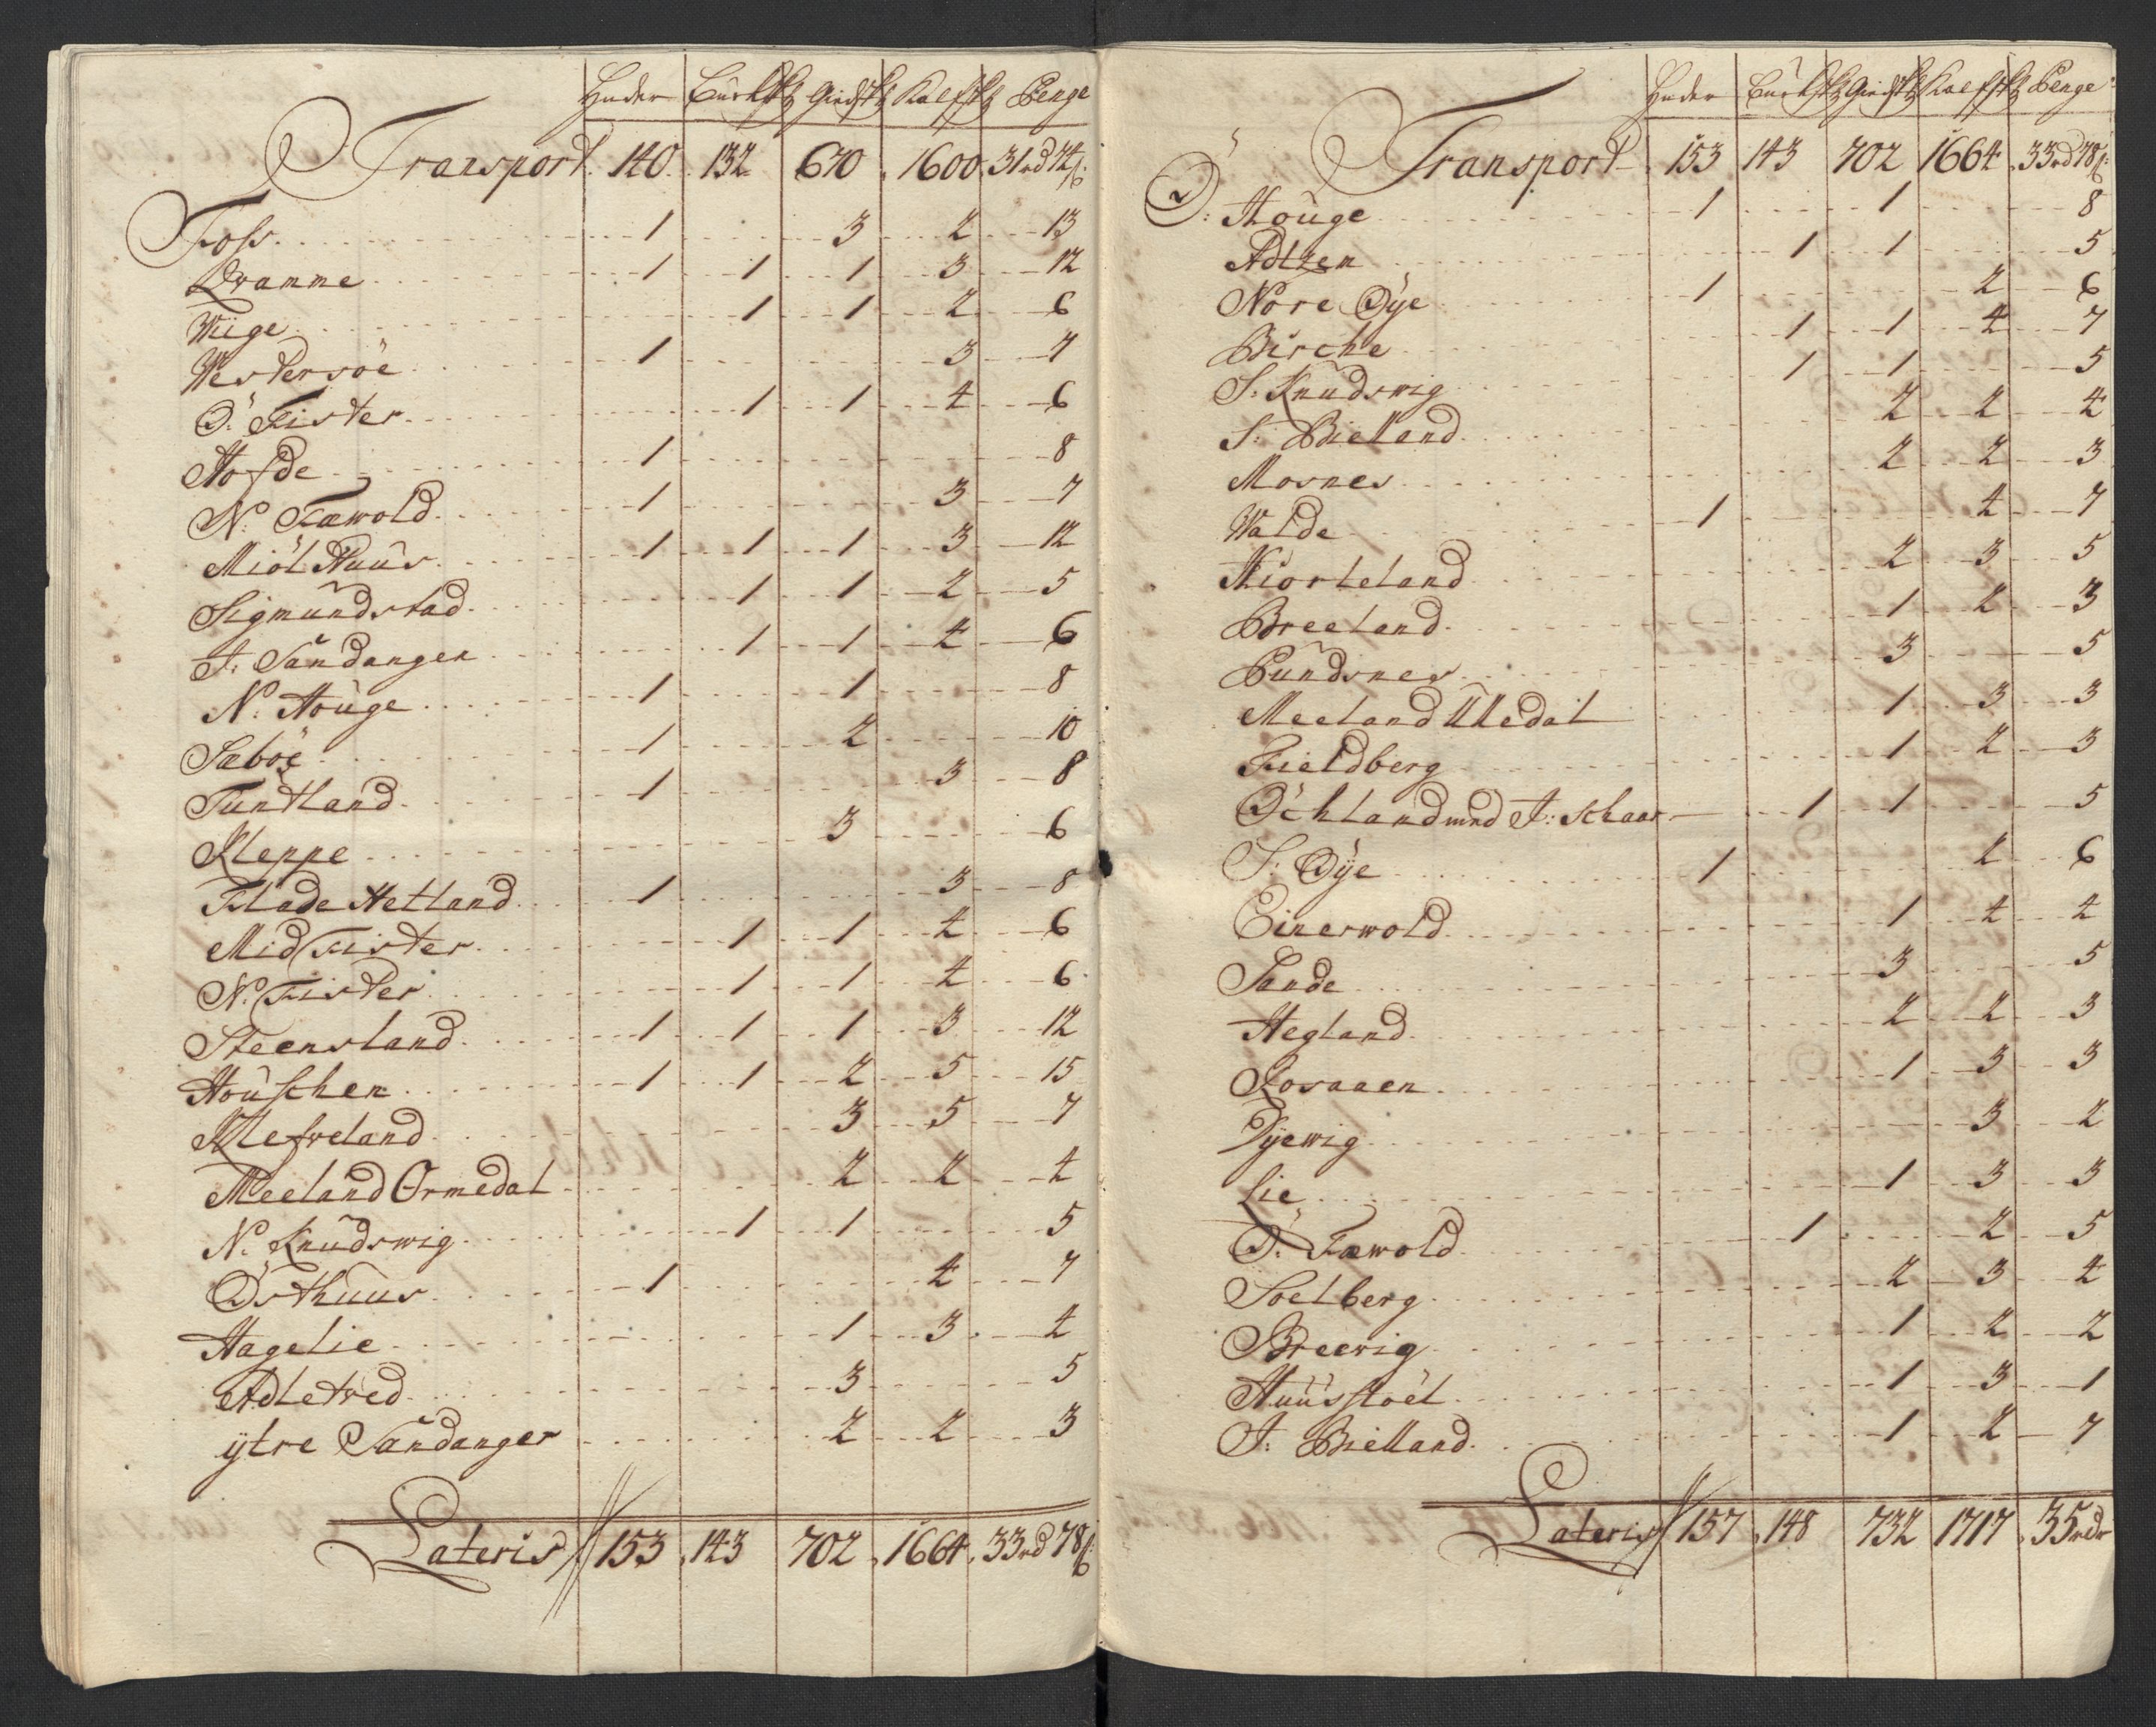 Huder Buckskd Giedskd Kalfskd Penge
Transport. 140. 132 670 1600 31rd 74ß
Foss 1 3 2 13
Dramne 1 1 1 3 12
Wiige 1 1 2 6
Westersöe 1 3 7
Ö: Fister 1 1 4 6
Hofde 1 8
N: Fæwold 1 3 7
Miöl Huus 1 1 1 3 12
Sigmundstad 1 1 2 5
J: Sandanger 1 1 4 6
N: Houge 1 1 8
Sæböe 1 2 10
Tuntland 1 3 8
Kleppe 3 6
Flade Hetland 1 3 8
Mid Fister 1 1 4 6
N: Fister 1 1 4 6
Steensland 1 1 1 3 12
Houschen 1 1 2 5 15
Klefveland 3 5 7
Meeland Ormedal 2 2 4
N: Knudswig 1 1 5
Östhuus 1 4 7
Hagelie 1 3 4
Adletved 3 5
ytre Sandanger 2 2 3
Lateris 153 143 702 1664 33rd 78ß
Huder Buckskd Giedskd Kalfskd Penge
Transport 153 143 702 1664 33rd 78ß
Ö: Houge 1 1 8
Adlzen 1 1 5
Nore Öye 1 2 6
Birche 1 1 4 7
S: Knudswig 1 1 5
S: Bielland 2 2 4
Mosnes 2 2 3
Walde 1 4 7
Hiorteland 2 3 5
Breeland 1 2 3
Pundsnes 3 5
Meeland Uledal 1 3 3
Fieldberg 1 2 3
Öchland med J: Schaar 1 1 5
S: Öye 1 2 6
Einerwold 1 4 4
Sande 3 5
Hegland 2 2 3
Rosaaen 1 3 3
Dyewig 3 2
Lie 1 3 3
Ö: Fæwold 1 2 5
Soelberg 2 3 4
Breewig 1 2 2
Huusstoel 1 3 1
J: Bielland 1 2 7
Lateris 157 148 732 1717 35rdr